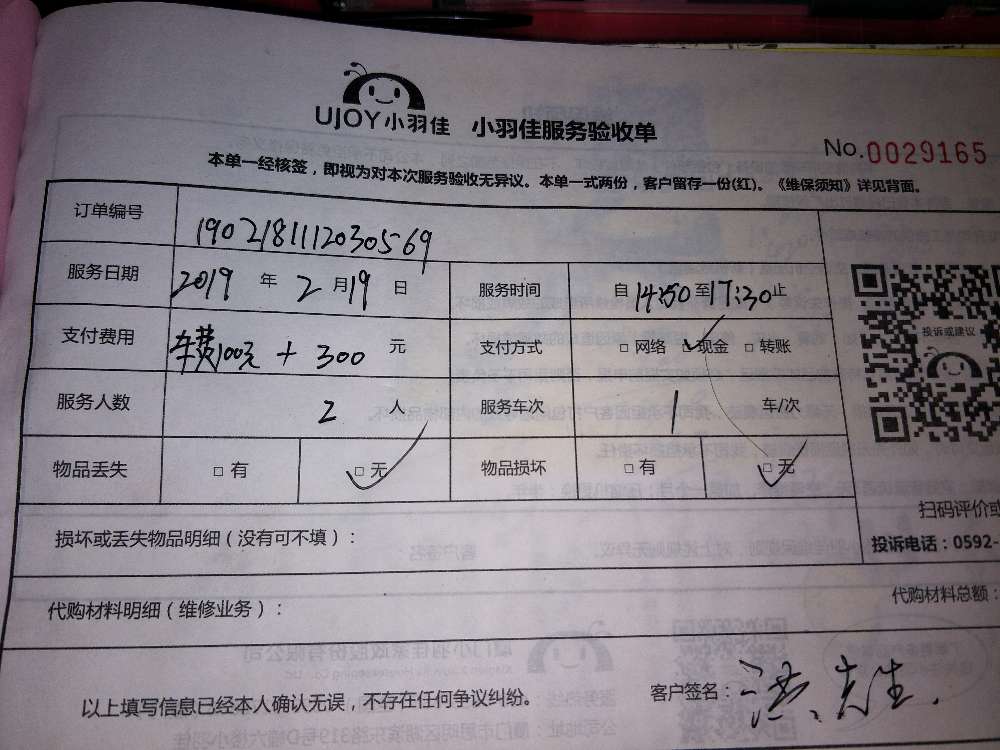 UJOY小羽佳 小羽佳服务验收单
No.0029165
本单一经核签，即视为对本次服务验收无异议。本单一式两份，客户留存一份(红)。《维保须知》详见背面。
订单编号 19021811120305569
服务日期 2019 年 2 月 19 日 服务时间 自 14:50 至 17:30 止
投诉或建议
支付费用 车费100元 + 300 元 支付方式 □ 网络 □ 现金 □ 转账
服务人数 2 人 服务车次 1 车/次
物品丢失 □ 有 □ 无 物品损坏 □ 有 □ 无
扫码评价或
损坏或丢失物品明细（没有可不填）：
投诉电话：0592-
代购材料明细（维修业务）：
代购材料总额：
以上填写信息已经本人确认无误，不存在任何争议纠纷。 客户签名： 洪先生.